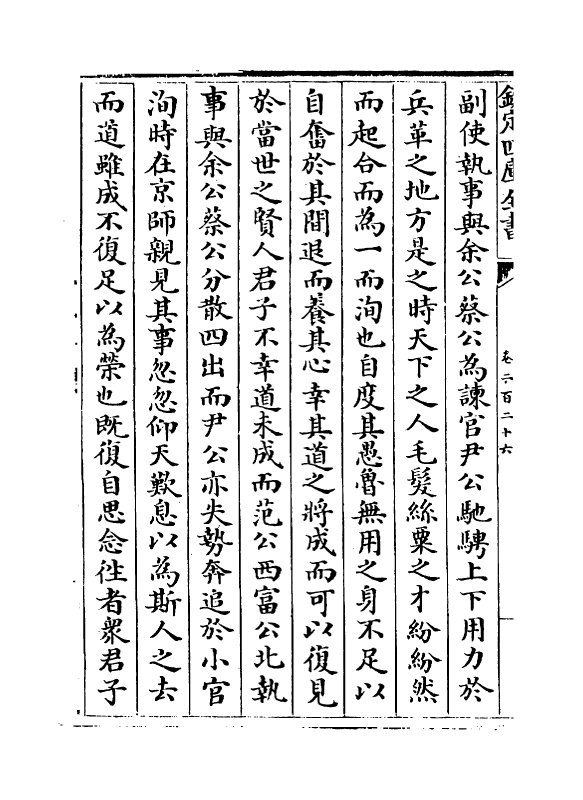 欽定四庫全書
卷二百二十六
副使執事與余公蔡公為諫官尹公馳騁上下用力於
兵革之地方是之時天下之人毛髮絲粟之才紛紛然
而起合而為一而洵也自度其愚魯無用之身不足以
自奮於其間退而養其心幸其道之將成而可以復見
於當世之賢人君子不幸道未成而范公西富公北執
事與余公蔡公分散四出而尹公亦失勢奔追於小官
洵時在京師親見其事忽忽仰天歎息以為斯人之去
而道雖成不復足以為榮也既復自思念徃者衆君子